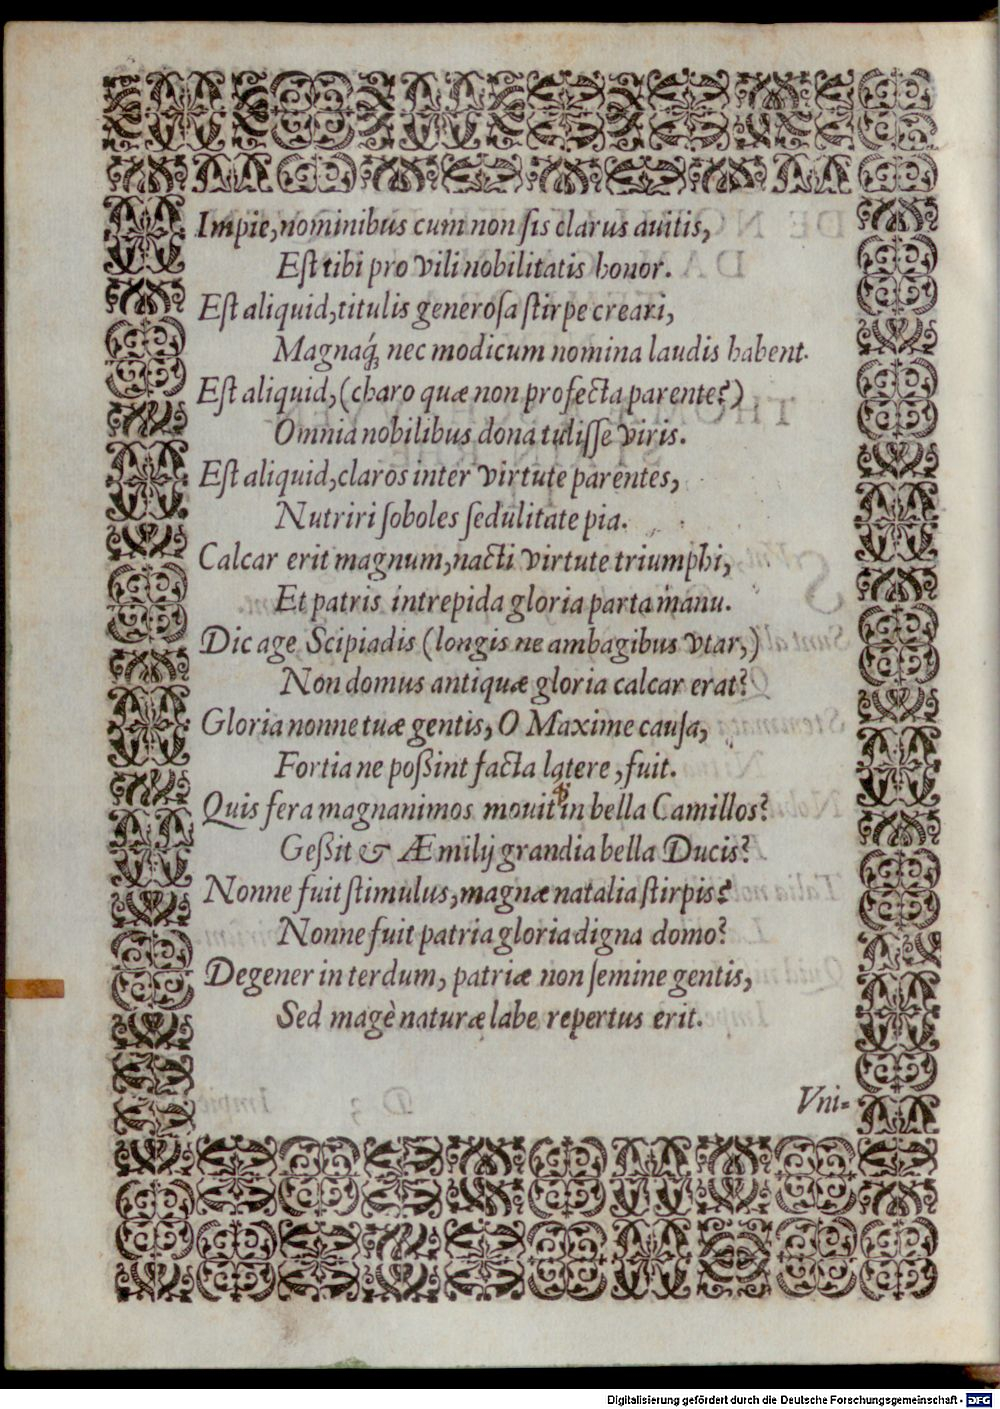 Impie, nominibus cum non ſis clarus auitis,
Eſt tibi pro vili nobilitatis honor.
Eſt aliquid, titulis generoſa ſtirpe creari,
Magnaq́; nec modicum nomina laudis habent.
Eſt aliquid, (charo quæ non profecta parente?)
Omnia nobilibus dona tuliſſe viris.
Eſt aliquid, claros inter virtute parentes,
Nutriri ſoboles ſedulitate pia.
Calcar erit magnum, nacti virtute triumphi,
Et patris intrepida gloria parta manu.
Dic age Scipiadis (longis ne ambagibus vtar,)
Non domus antiquæ gloria calcar erat?
Gloria nonne tuæ gentis, O Maxime cauſa,
Fortia ne poßint facta latere, fuit.
Quis fera magnanimos mouit in bella Camillos?
Geßit & Æmilij grandia bella Ducis?
Nonne fuit ſtimulus, magnæ natalia ſtirpis?
Nonne fuit patria gloria digna domo?
Degener interdum, patriæ non ſemine gentis,
Sed magè naturæ labe repertus erit.
Vni-
Digitalisierung gefördert durch die Deutsche Forschungsgemeinschaft - DFG